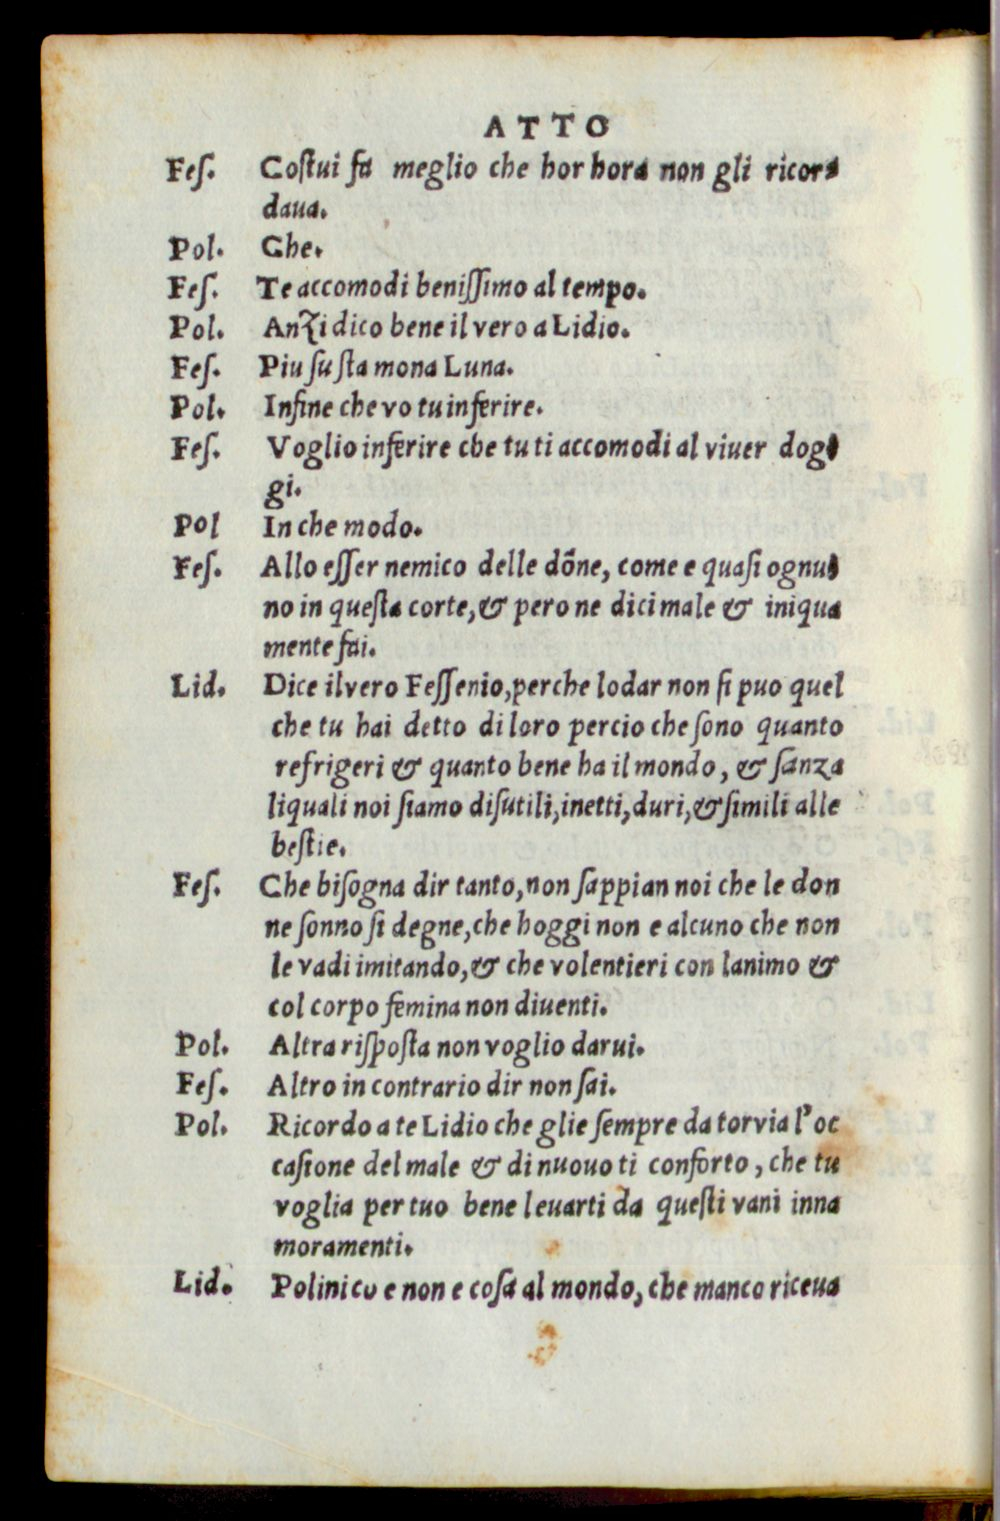 ATTO
Feſ. Coſtui fa meglio che hor hora non gli ricor⸗
daua.
Pol. Che.
Feſ. Te accomodi beniſſimo al tempo.
Pol. Anzi dico bene il vero a Lidio.
Feſ. Piu ſu ſta mona Luna.
Pol. Infine che vo tu inferire.
Feſ. Voglio inferire che tu ti accomodi al viuer dog⸗
gi.
Pol In che modo.
Feſ. Allo eſſer nemico delle dōne, come e quaſi ognu⸗
no in queſta corte, & pero ne dici male & iniqua
mente fai.
Lid. Dice il vero Feſſenio, perche lodar non ſi puo quel
che tu hai detto di loro percio che ſono quanto
refrigeri & quanto bene ha il mondo, & ſanza
liquali noi ſiamo diſutili, inetti, duri, & ſimili alle
beſtie.
Feſ. Che biſogna dir tanto, non ſappian noi che le don
ne ſonno ſi degne, che hoggi non e alcuno che non
le vadi imitando, & che volentieri con lanimo &
col corpo femina non diuenti.
Pol. Altra riſpoſta non voglio darui.
Feſ. Altro in contrario dir non ſai.
Pol. Ricordo a te Lidio che glie ſempre da tor via l'oc
caſione del male & di nuouo ti conforto, che tu
voglia per tuo bene leuarti da queſti vani inna
moramenti.
Lid. Polinico e non e coſa al mondo, che manco riceua